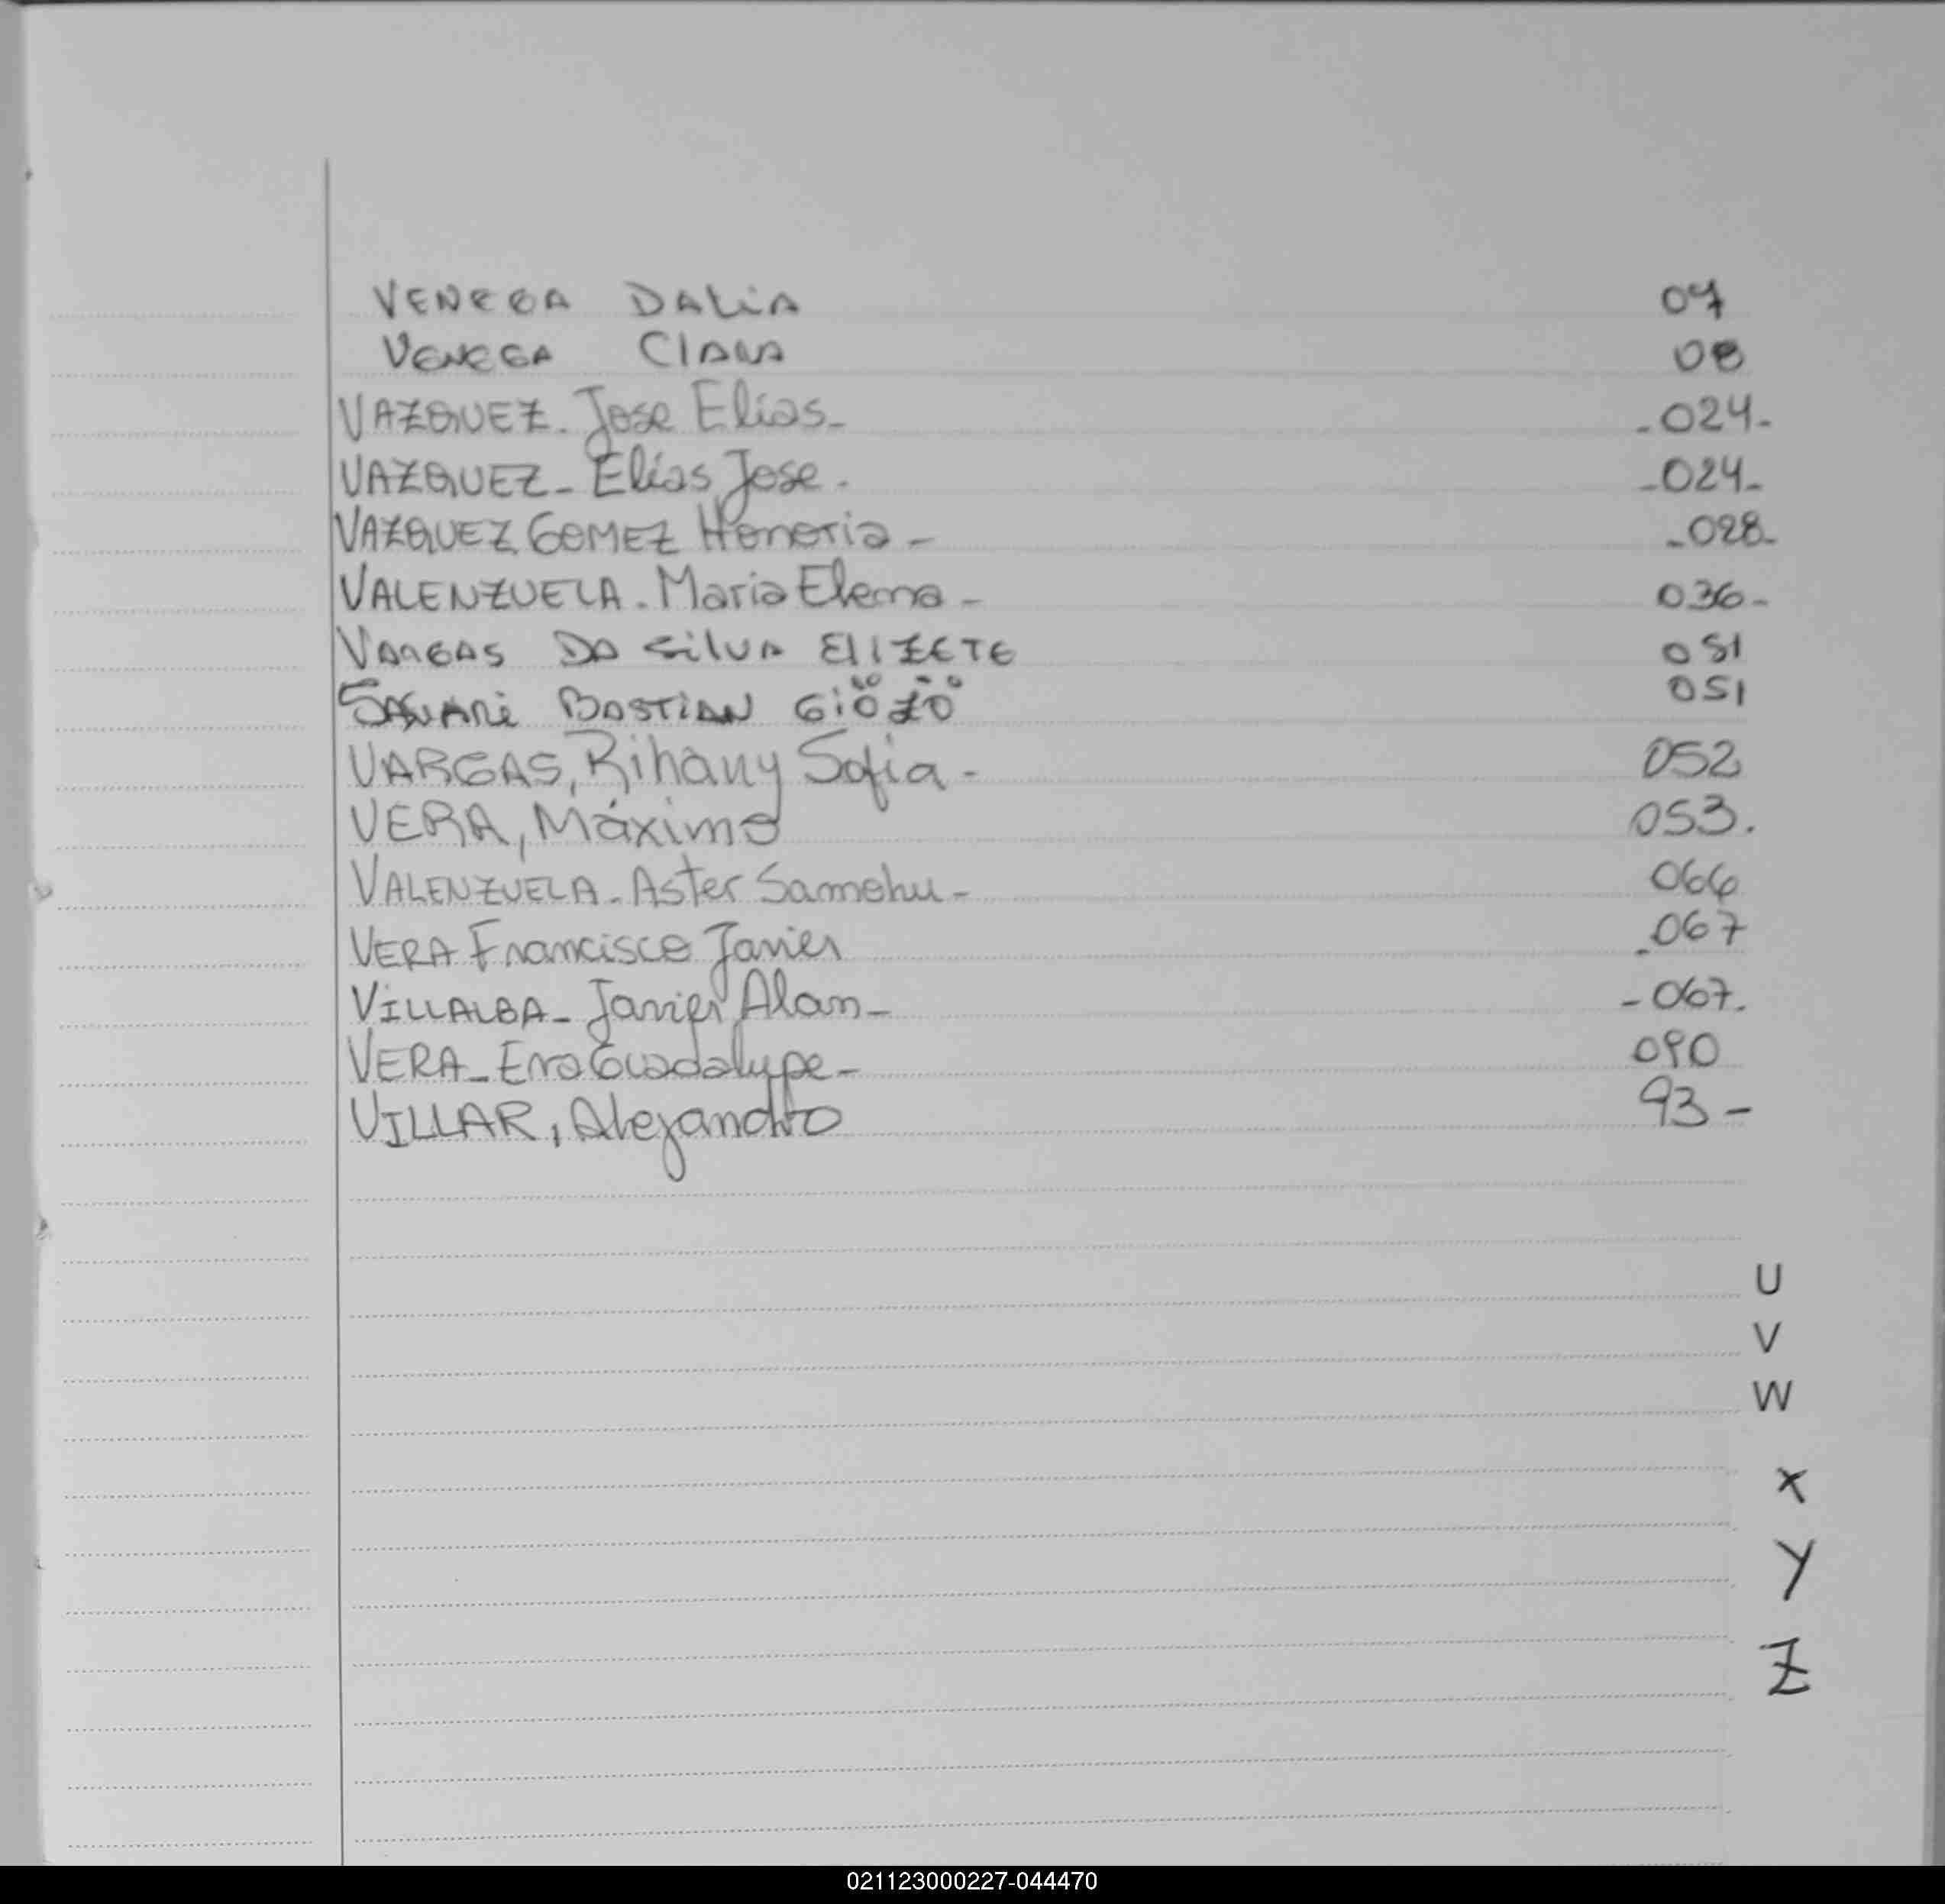 VENEGA DALIA 07
VENEGA CLARA 08
VAZQUEZ. Jose Elias_ _024_
VAZQUEZ_ Elias Jose. _024_
VAZQUEZ GOMEZ Honoria_ _028_
VALENZUELA. Maria Elena_ 036_
VARGAS DA SILVA ELIZETE 051
BASTIAN 051
VARGAS, Rihany Sofia - 052
VERA, Máximo 053.
VALENZUELA. Aster Samehu_ 066
VERA Francisco Javier _067
VILLALBA_ Javier Alan_ _067.
VERA_ Guadalupe_ 090
VILLAR, Alejandro 93_
U
V
W
X
Y
Z
021123000227-044470